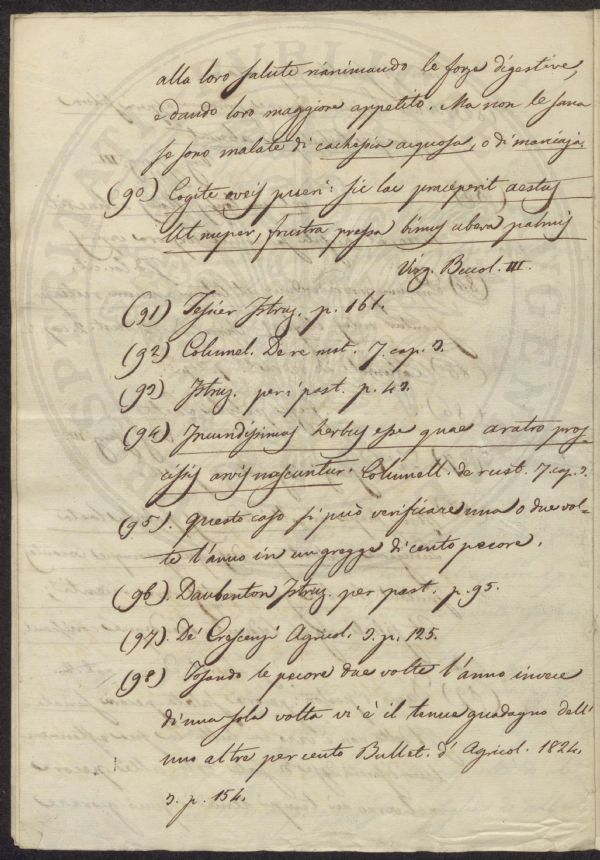 alla loro salute rianimando le forze digestive,
e dando loro maggiore appetito. Ma non le sana
se sono malate di cachessia acquosa, o di marciaja.
(90) Cogite oveis pueri: sic lac praeceperit aestus
Ut nuper, frustra pressa bimus ubera palmis
Virg. Bucol. III.
(91) Tessier Istruz. p. 161.
(92) Columel. De re rust. 7. cap. 3.
(93) Istruz. per i past. p. 43.
(94) Iucundissimas herbas esse quae aratro pros-
cissis arvis nascuntur. Columell. de rust. 7. cap. 3.
(95). Questo caso si può verificare una o due vol-
te l'anno in un gregge di cento pecore.
(96). Daubenton Istruz. per past. p. 95.
(97). De' Crescenzi Agricol. 3. p. 125.
(98) Tosando le pecore due volte l'anno invece
di una sola volta vi è il tenue guadagno dell'
uno al tre per cento Bullet. d' Agricol. 1824.
3. p. 154.